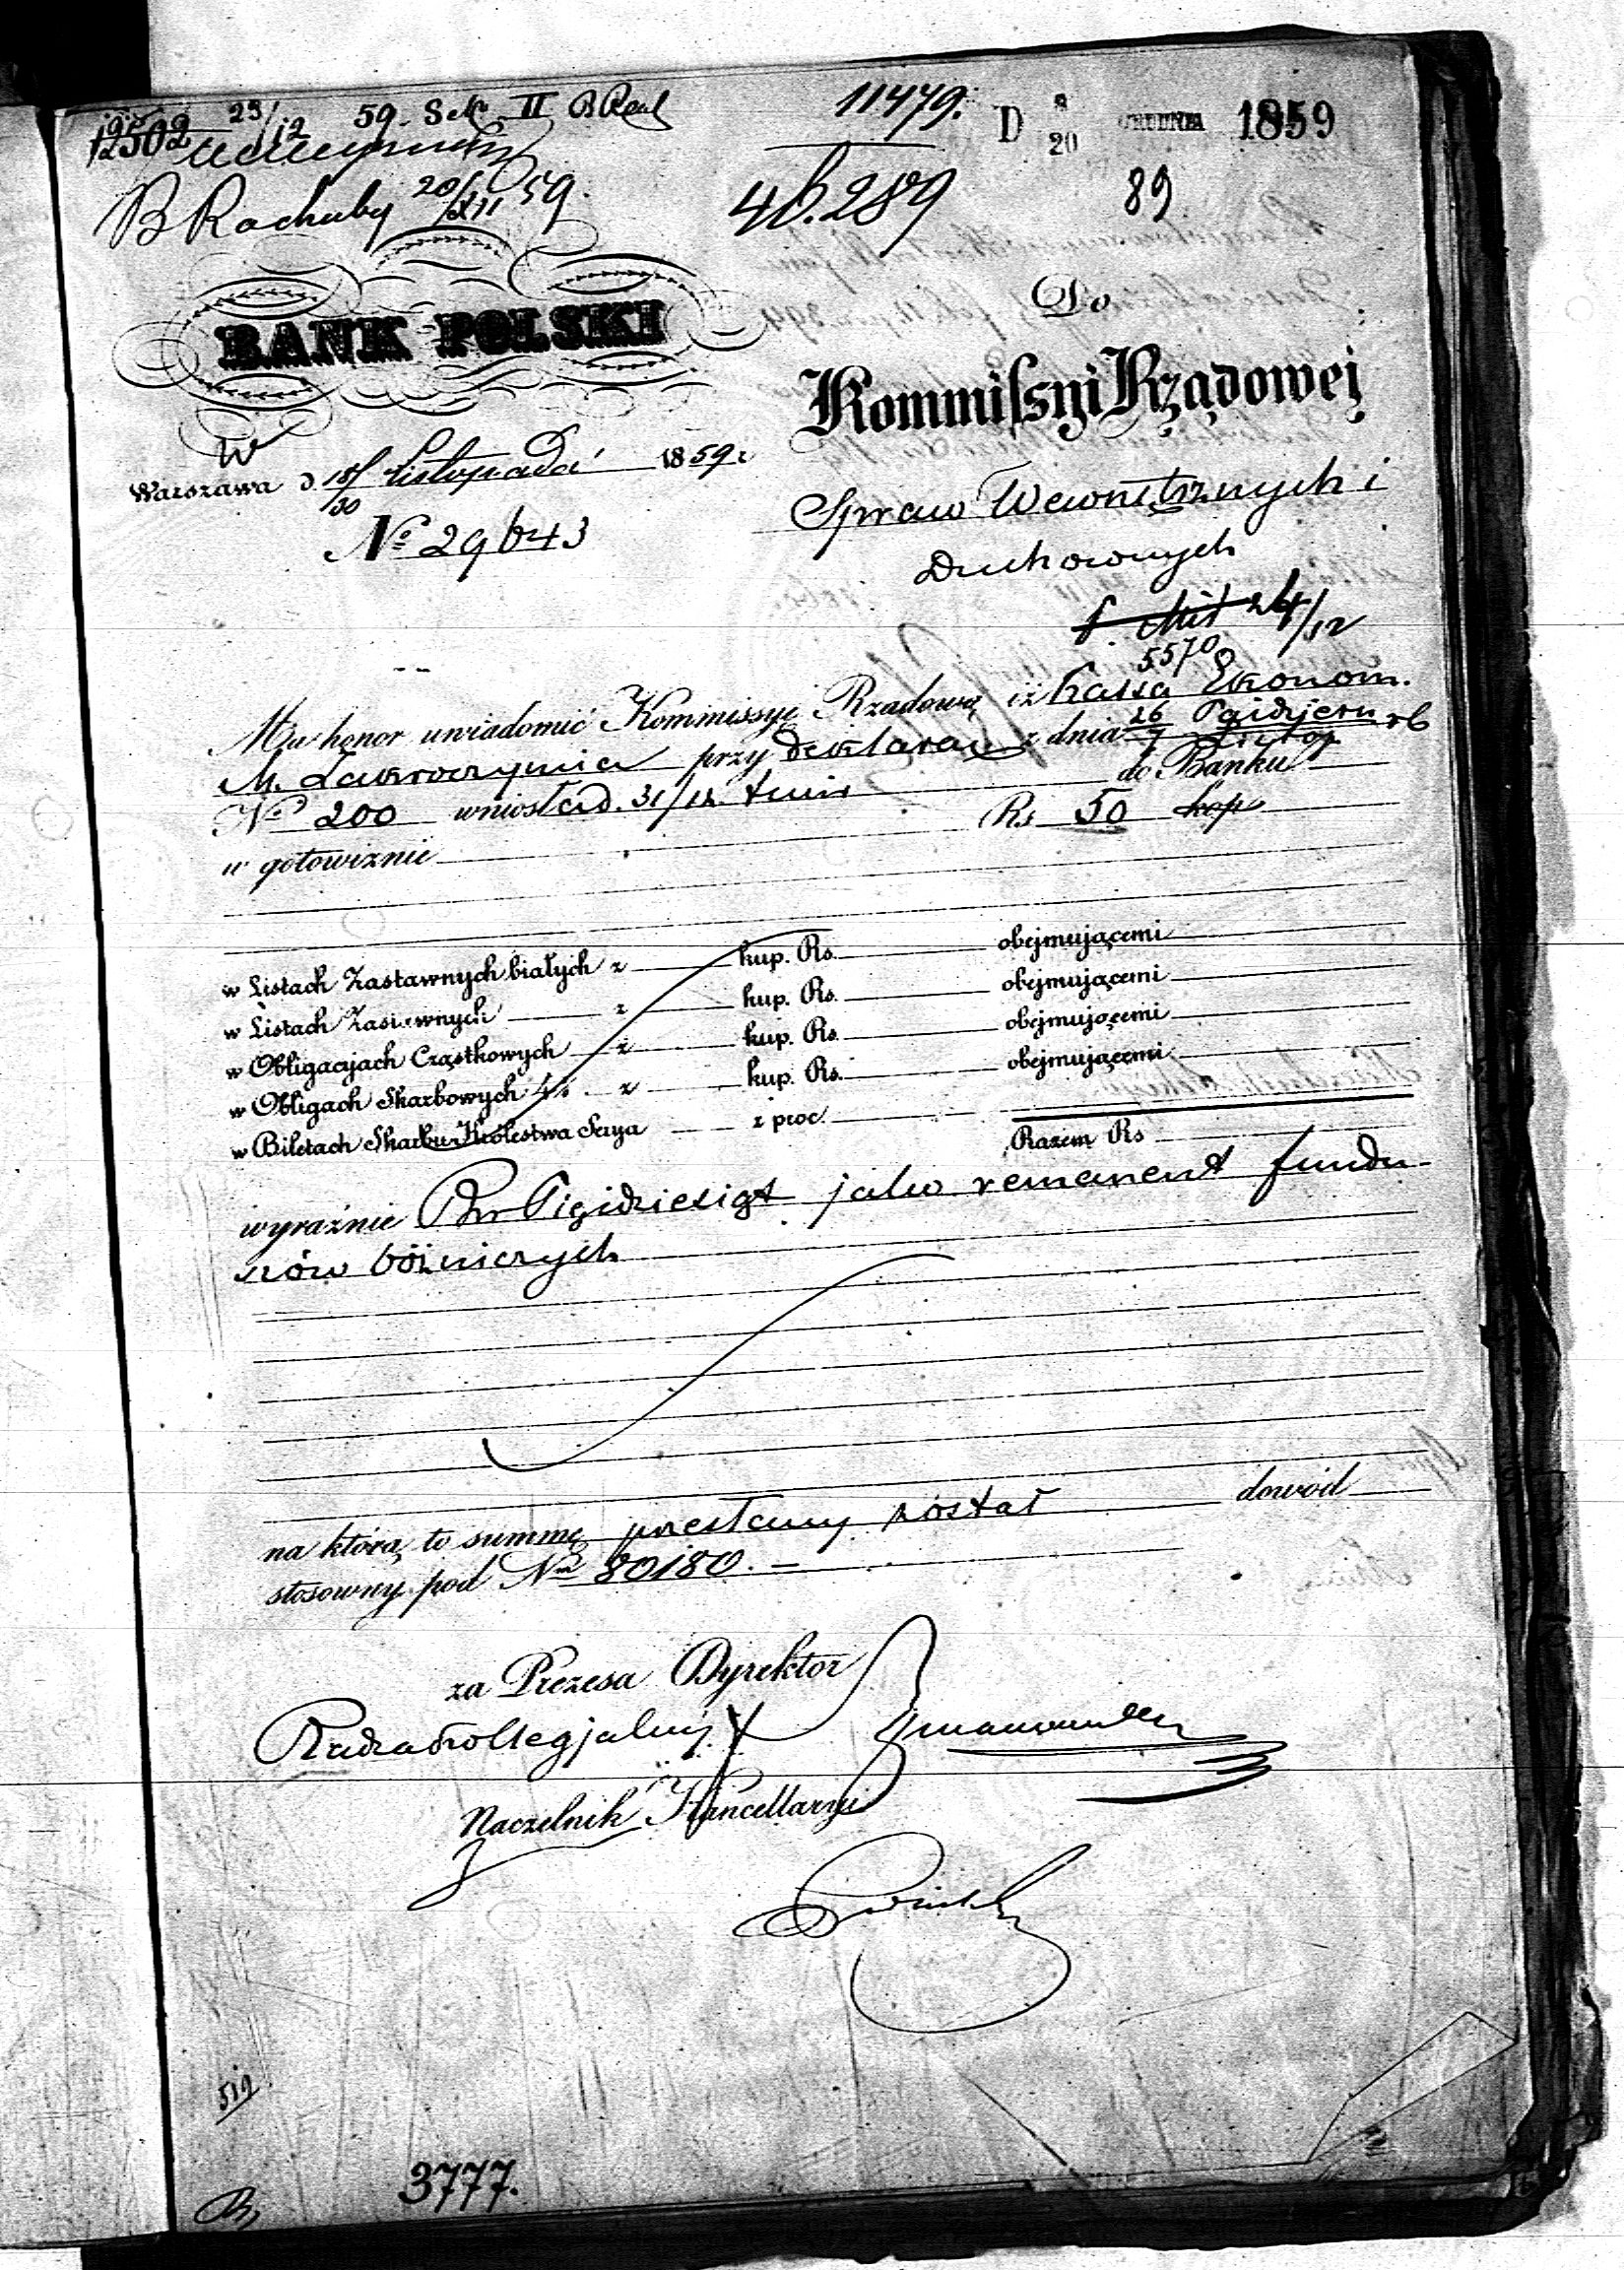 12502 23/12 59. Sek II B Real
11479.
D 8/20 GRUDNIA 1859
B Rachuby 20/XII 59.
4b.289
89
BANK POLSKI
Do
Kommissyi Rządowej
W
Warszawa d. 18/30 Listopada 1859 r
Spraw Wewnętrznych i
Duchownych
No 29643
24/12
5570
Ma honor uwiadomić Kommissyę Rządową iż Kassa Ekonom.
M. Zakroczymia przy deklaracyi z dnia 26 Pąidziern rb
No 200 wniosła d. 31/12 t. m. do Banku
w gotowiznie Rs 50 kop
w Listach Zastawnych białych z kup. Rs. obejmującemi
w Listach Zastawnych z kup. Rs. obejmującemi
w Obligacyjach Cząstkowych z kup. Rs. obejmującemi
w Obligach Skarbowych 4% z kup. Rs. obejmującemi
w Biletach Skarbu Królestwa Serya z proc.
Razem Rs
wyraźnie Rsr Pięidziesiąt jako remanent fundu-
szów bóżniczych
na którą to summę przesłany został dowód
stosowny pod Nm 80180. –
za Prezesa Dyrektor
Radca Kollegjalny
Naczelnik Kancellaryi
512
3777.